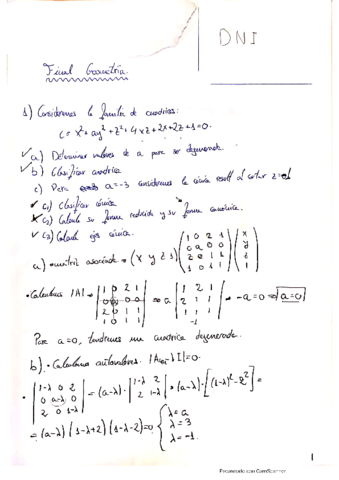 DNI
Final Geometría.
1) Consideremos la familia de cuadricas:
C = x²+ay²+z²+4xz+2x+2z+1=0.
a) Determinar valores de a para ser degenerada.
b) Clasificar cuadrica
c) Para a=-3 consideremos la cónica result al cortar z=0
c1) Clasificar cónica
c2) Calcula su forma reducida y su forma canónica.
c3) Calcula ejes cónica.
a) matriz asociada = (x y z 1) (1 0 2 1 / 0 a 0 0 / 2 0 1 1 / 1 0 1 1) (x / y / z / 1)
• Calculamos |A| = |1 0 2 1 / 0 a 0 0 / 2 0 1 1 / 1 0 1 1| = a |1 2 1 / 2 1 1 / 1 1 1| = -a = 0 ⇒ a=0
-1
Para a=0, tendremos una cuadrica degenerada.
b) • Calculamos autovalores. |A-λI|=0.
• |1-λ 0 2 / 0 a-λ 0 / 2 0 1-λ| = (a-λ) · |1-λ 2 / 2 1-λ| = (a-λ) · [(1-λ)²-2²] =
= (a-λ) (1-λ+2) (1-λ-2)=0 { λ=a / λ=3 / λ=-1.
1
Escaneado con CamScanner